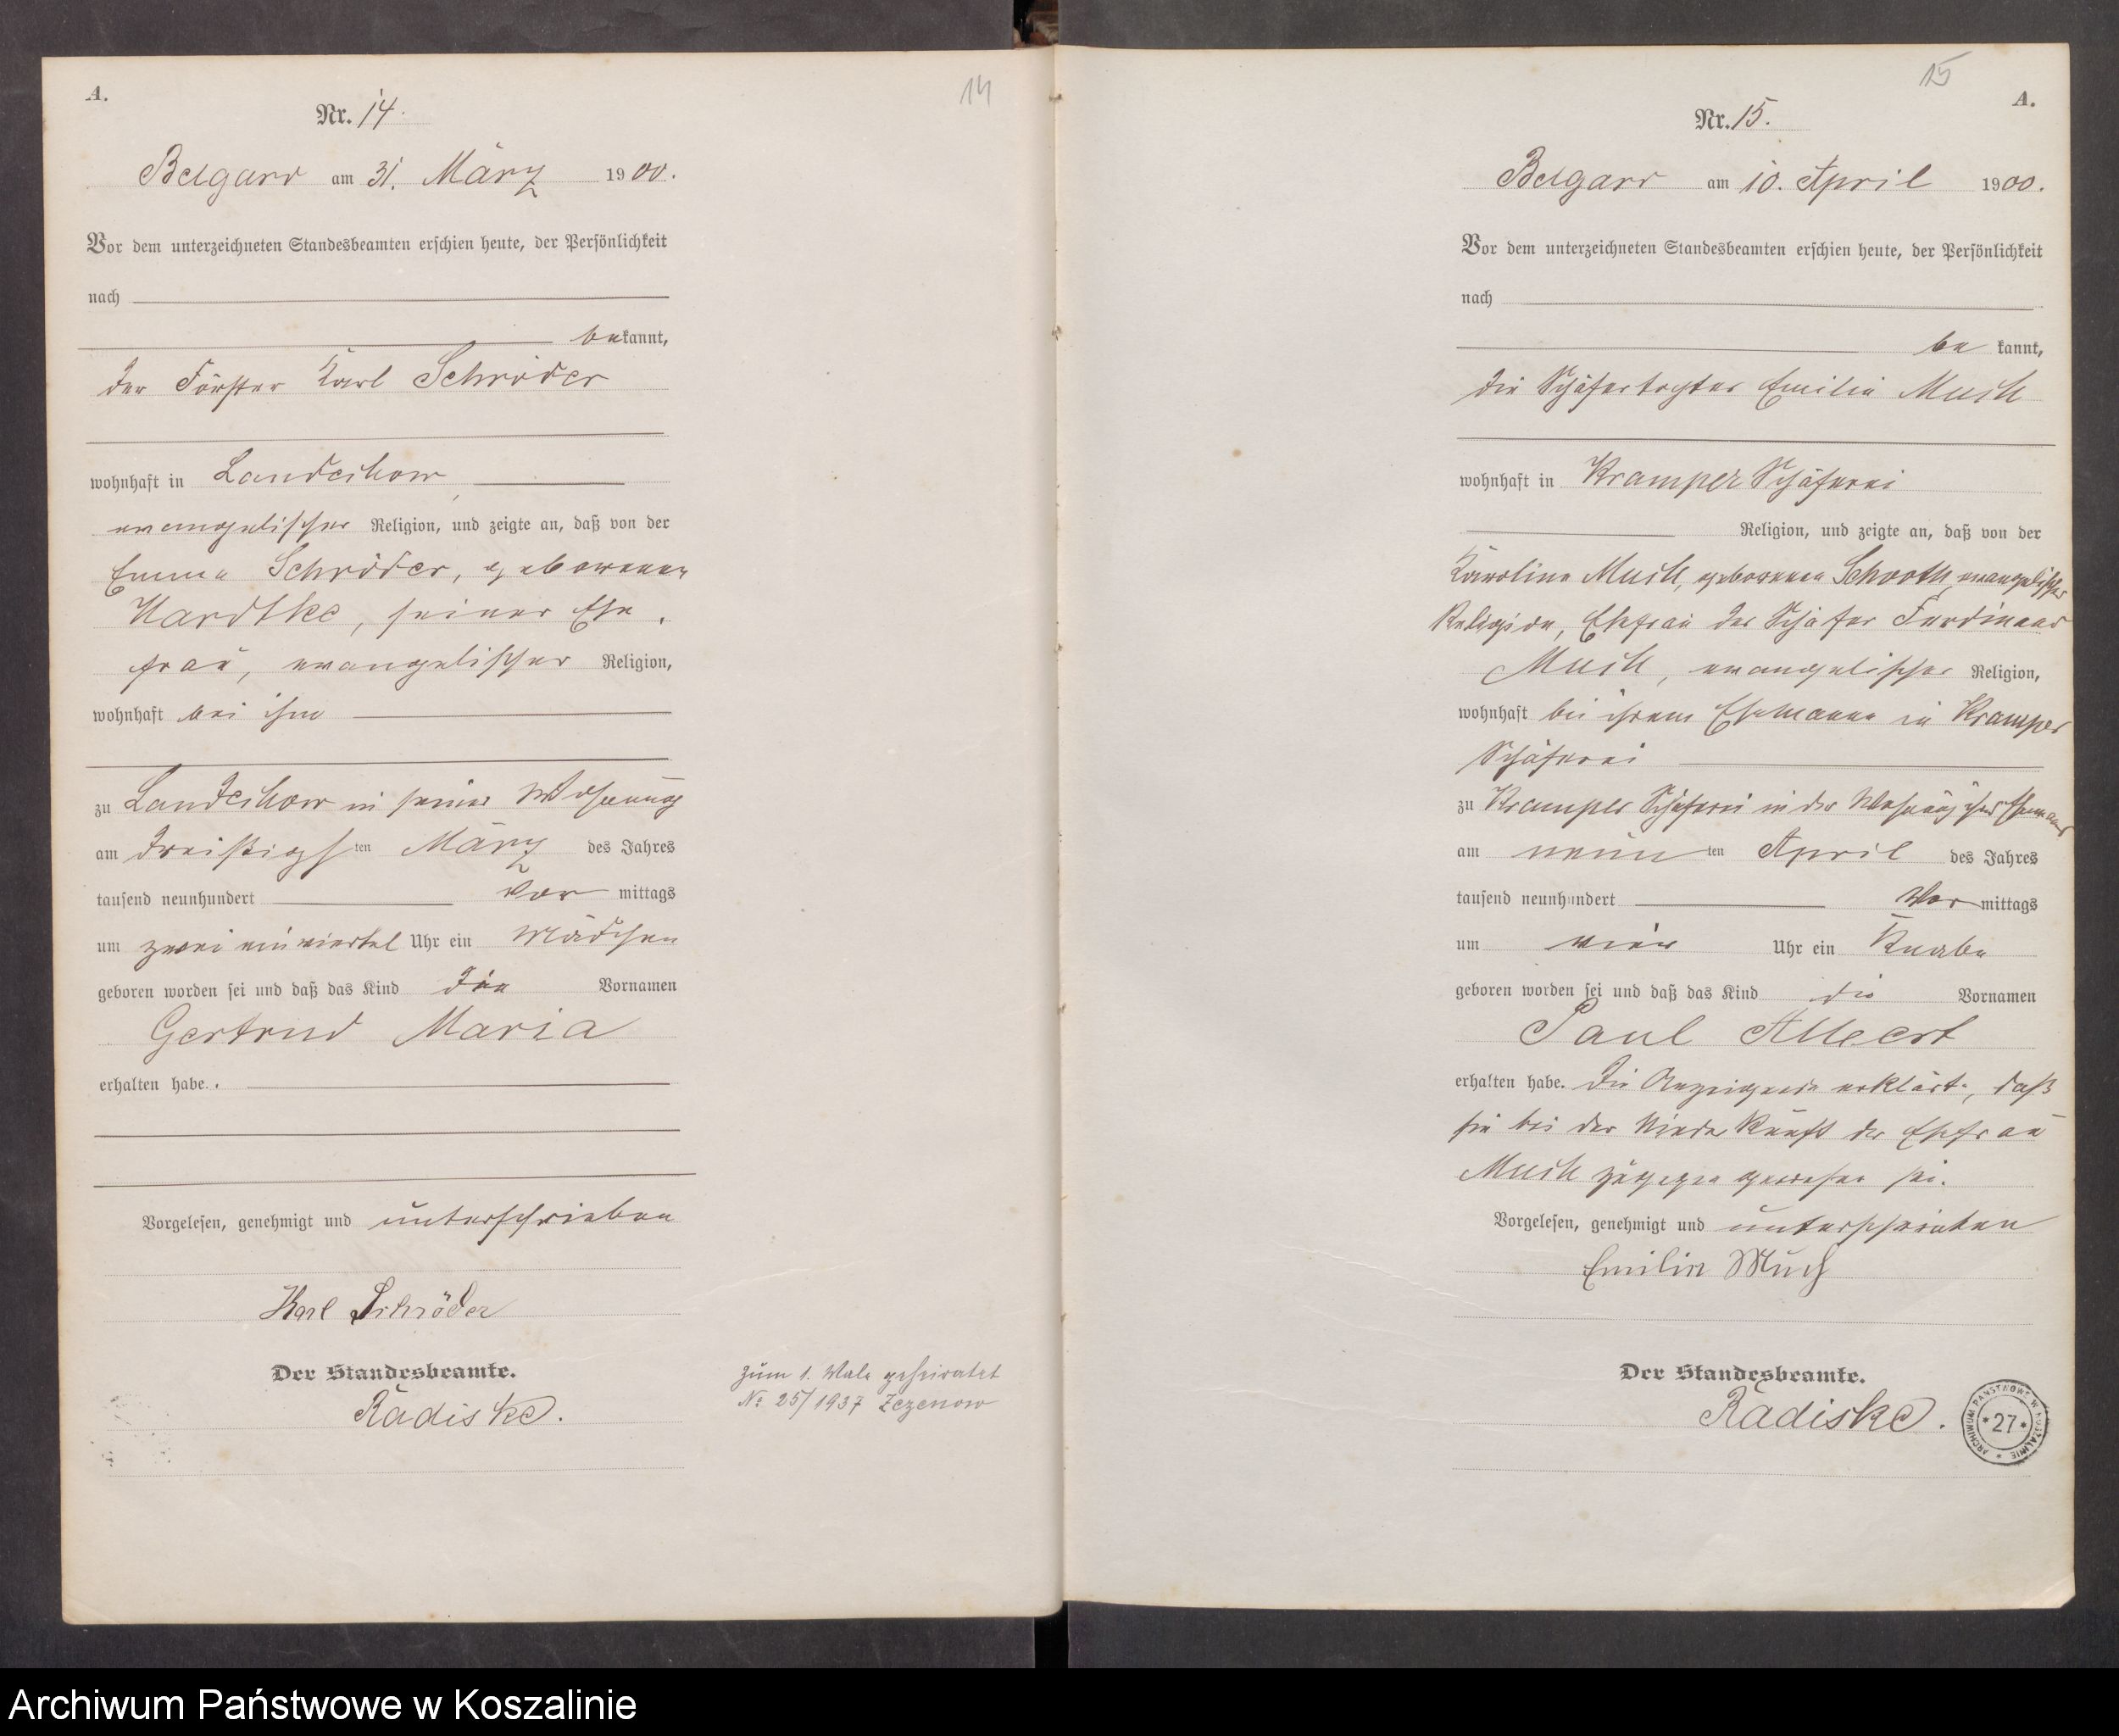 A.
14
Nr. 14.
Belgard am 31. März 1900.
Vor dem unterzeichneten Standesbeamten erschien heute, der Persönlichkeit
nach
bekannt,
der Förster Karl Schröder
wohnhaft in Landechow
evangelischer Religion, und zeigte an, daß von der
Emma Schröder, geborenen
Hardtke, seiner Ehe-
frau, evangelischer Religion,
wohnhaft bei ihm
zu Landechow in seiner Wohnung
am dreißigsten März des Jahres
tausend neunhundert vor mittags
um zwei einviertel Uhr ein Mädchen
geboren worden sei und daß das Kind die Vornamen
Gertrud Maria
erhalten habe.
Vorgelesen, genehmigt und unterschrieben
Karl Schröder
Der Standesbeamte.
Radiske.
zum 1. Male geheiratet
No 25/1937 Zezenow
15
A.
Nr. 15.
Belgard am 10. April 1900.
Vor dem unterzeichneten Standesbeamten erschien heute, der Persönlichkeit
nach
be kannt,
die Schäfertochter Emilie Much
wohnhaft in Kramper Schäferei
Religion, und zeigte an, daß von der
Karoline Much, geborenen evangelischer
Religion, Ehefrau des Schäfer Ferdinand
Much, evangelischer Religion,
wohnhaft bei ihrem Ehemanne in Kramper
Schäferei
zu Kramper Schäferei in der Wohnung ihres Ehemanns
am neunten April des Jahres
tausend neunhundert Vor mittags
um vier Uhr ein Knabe
geboren worden sei und daß das Kind die Vornamen
Paul Albert
erhalten habe. Die Anzeigende erklärte, daß
sie bei der Niederkunft der Ehefrau
Much zugegen gewesen sei.
Vorgelesen, genehmigt und unterschrieben
Emilie Much
Der Standesbeamte.
Radiske.
ARCHIWUM PAŃSTWOWE W KOSZALINIE * 27 *
Archiwum Państwowe w Koszalinie